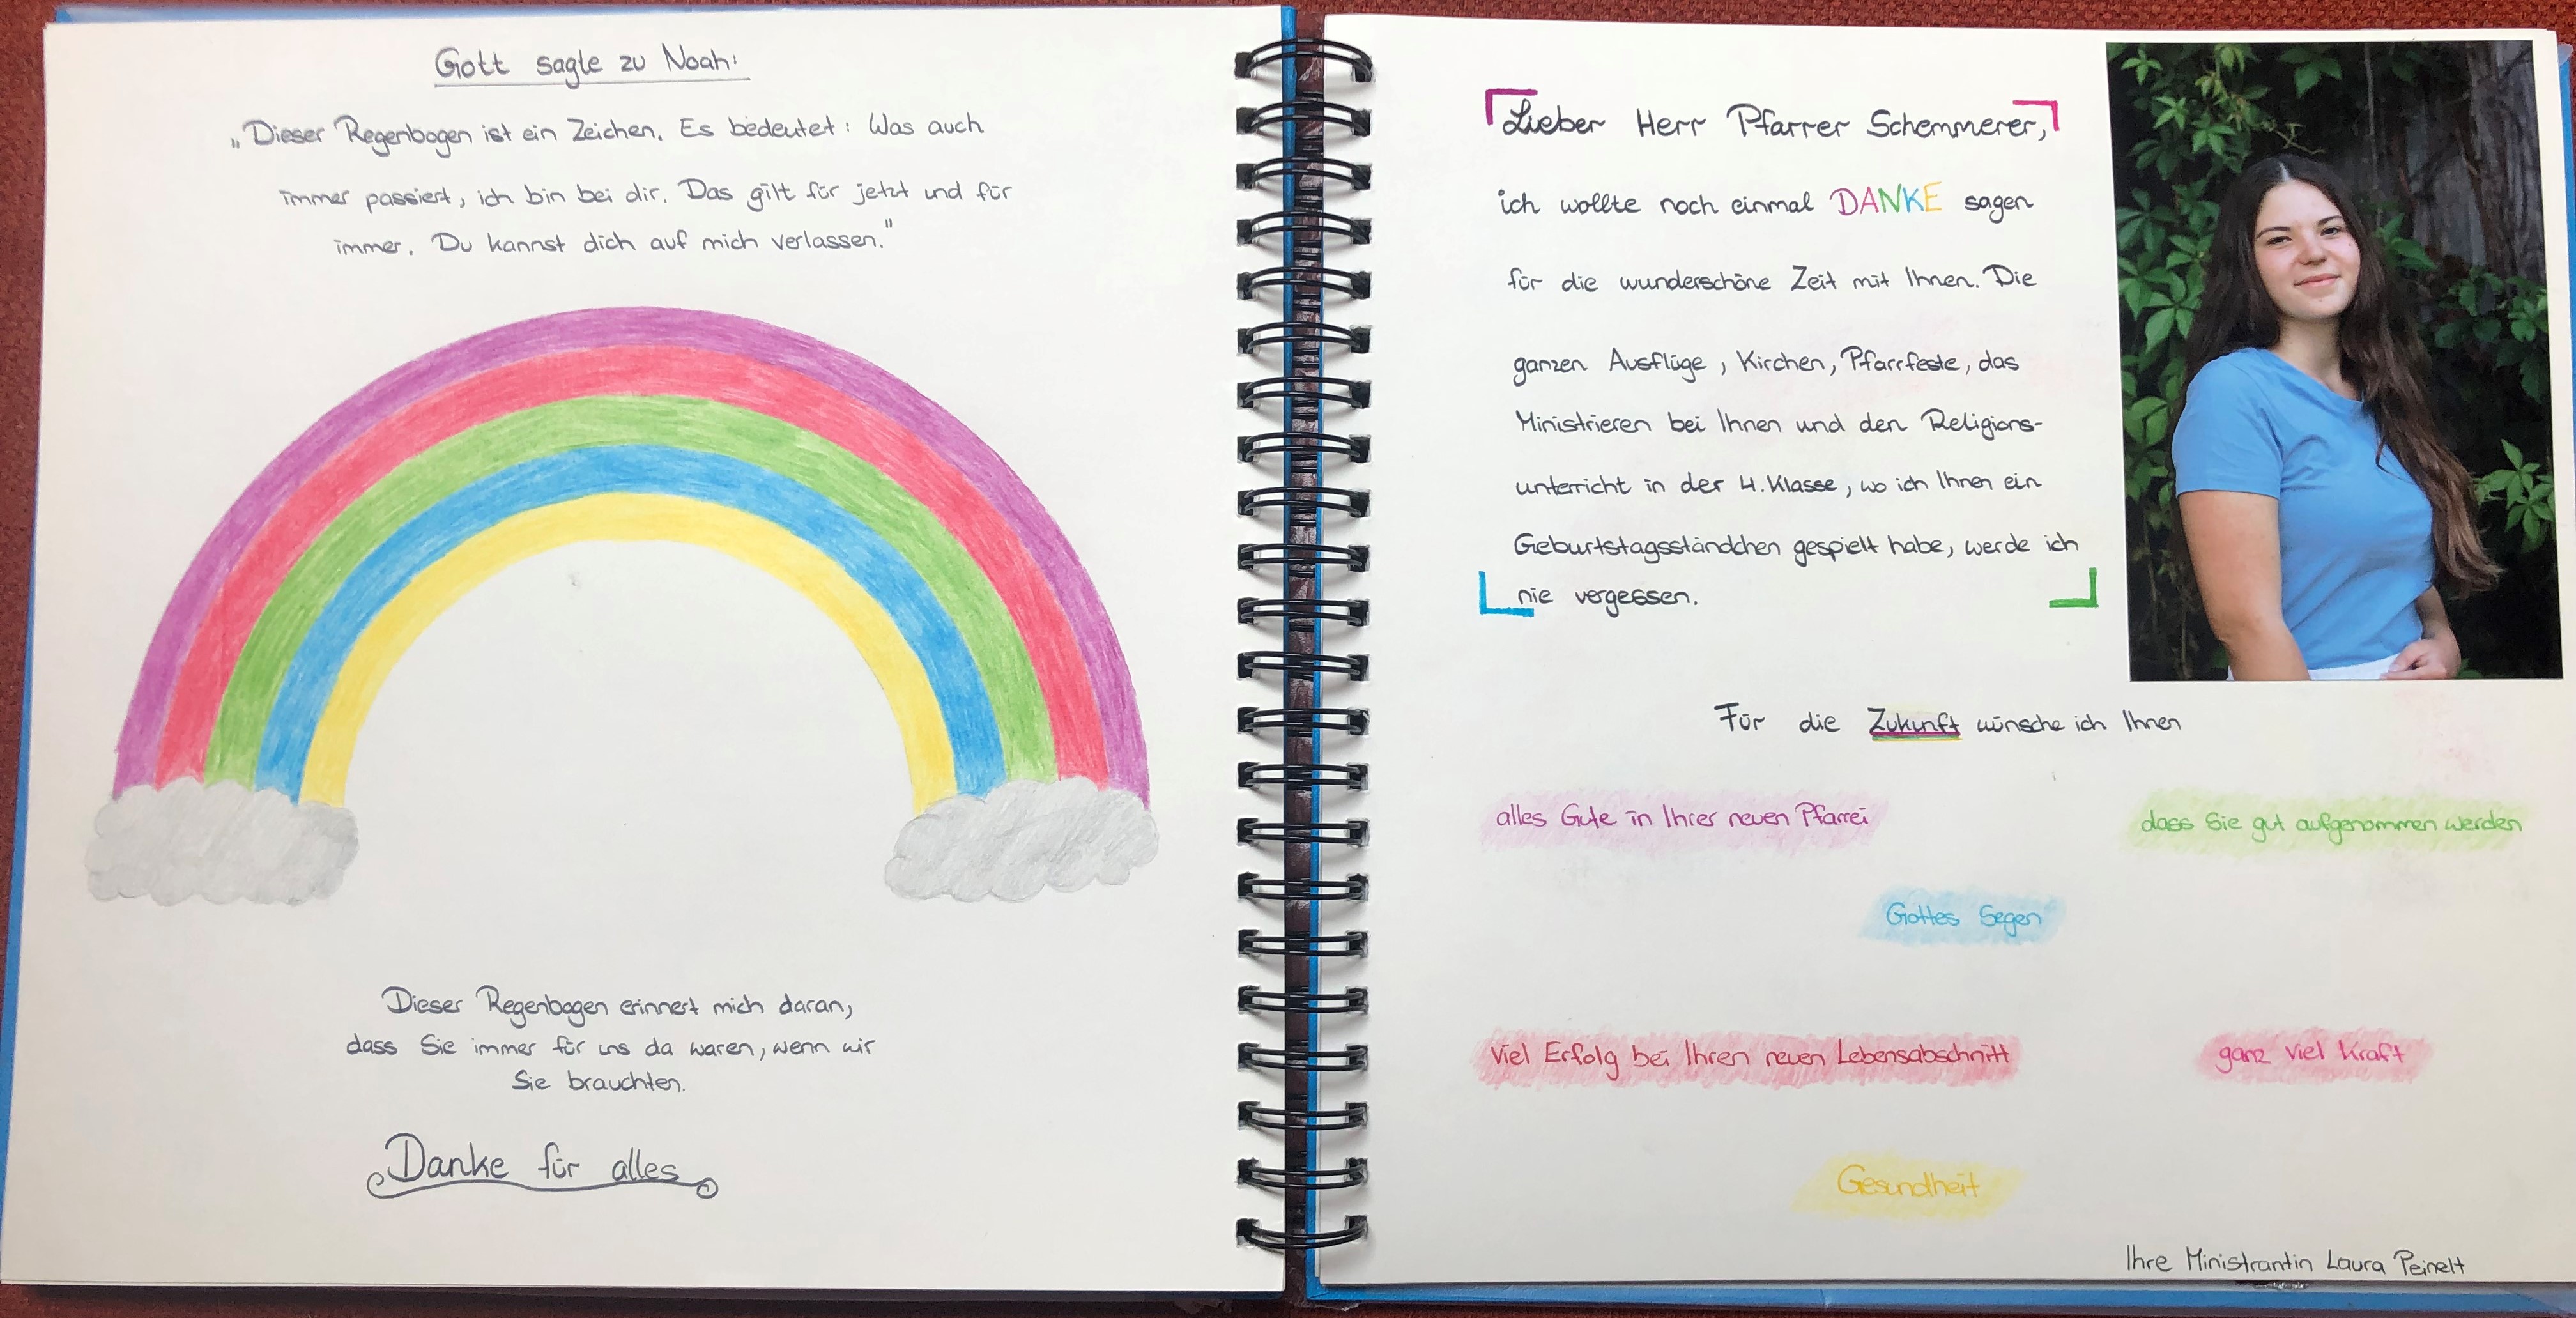 Gott sagte zu Noah:
„Dieser Regenbogen ist ein Zeichen. Es bedeutet: Was auch
immer passiert, ich bin bei dir. Das gilt für jetzt und für
immer. Du kannst dich auf mich verlassen."
Dieser Regenbogen erinnert mich daran,
dass Sie immer für uns da waren, wenn wir
Sie brauchten.
Danke für alles
Lieber Herr Pfarrer Schemmerer,
ich wollte noch einmal DANKE sagen
für die wunderschöne Zeit mit Ihnen. Die
ganzen Ausflüge, Kirchen, Pfarrfeste, das
Ministrieren bei Ihnen und den Religions-
unterricht in der 4. Klasse, wo ich Ihnen ein
Geburtstagsständchen gespielt habe, werde ich
nie vergessen.
Für die Zukunft wünsche ich Ihnen
alles Gute in Ihrer neuen Pfarrei
dass Sie gut aufgenommen werden
Gottes Segen
Viel Erfolg bei Ihren neuen Lebensabschnitt
ganz viel Kraft
Gesundheit
Ihre Ministrantin Laura Peinelt